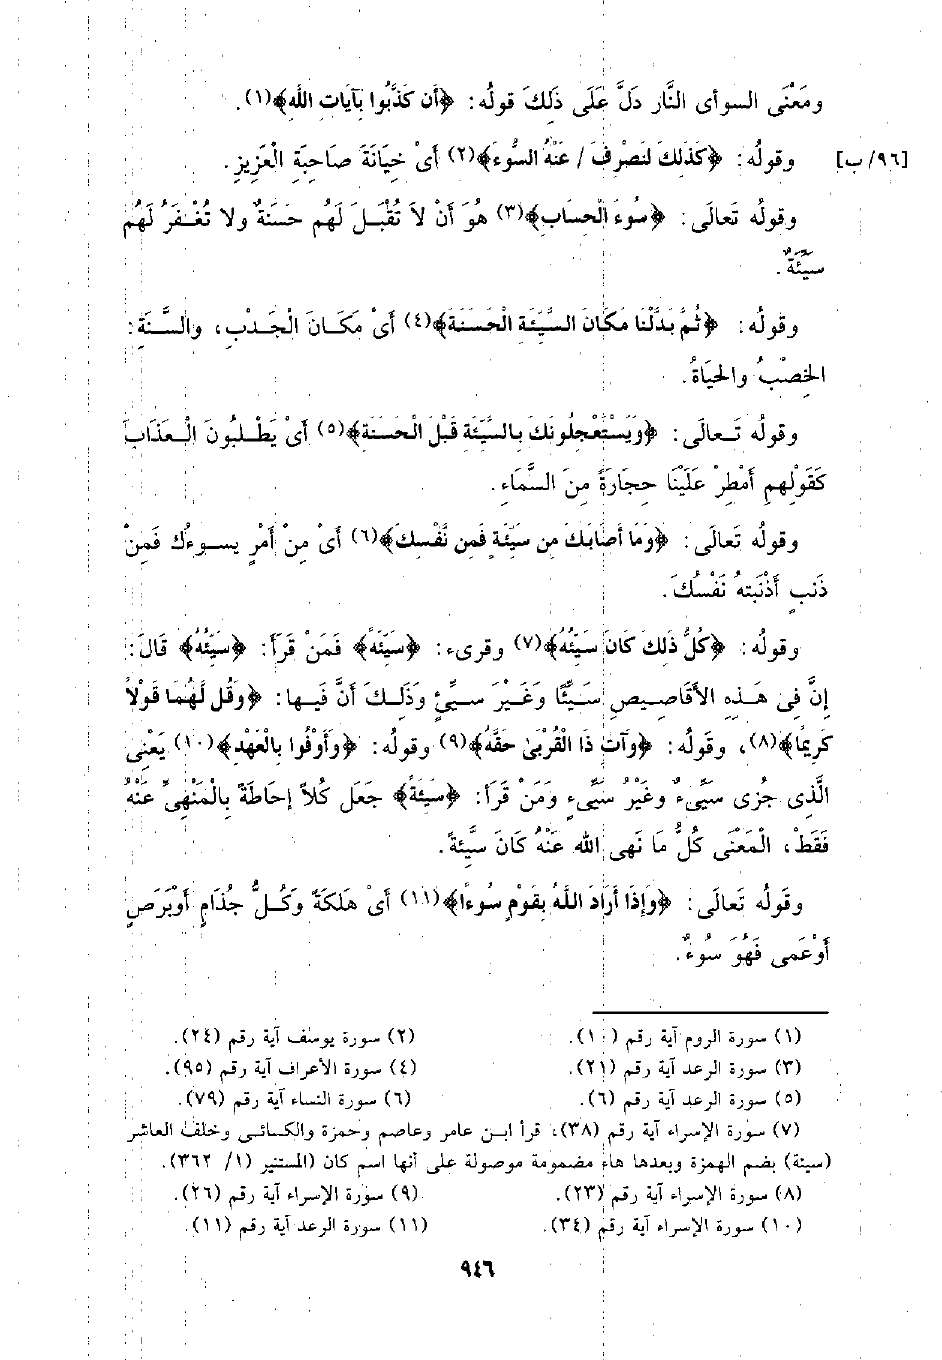 ومَعْنَى السوأى النَّار دَلَّ عَلَى ذَلِكَ قولُه: ﴿أَن كَذَّبُوا بِآيَاتِ اللَّه﴾(١).
[٩٦/ ب] وقولُه: ﴿كَذَلِكَ لِنَصْرِفَ / عَنْهُ السُّوءَ﴾(٢) أىْ خِيَانَةَ صَاحِبَةِ الْعَزِيزِ.
وقولُه تَعالَى: ﴿سُوءَ الْحِسَابِ﴾(٣) هُوَ أَنْ لاَ تُقْبَلَ لَهُم حَسَنَةٌ ولا تُغْفَرُ لَهُم
سيِّئَةٌ.
وقولُه: ﴿ثُمَّ بَدَّلْنَا مَكَانَ السَّيِّئَةِ الْحَسَنَةَ﴾(٤) أىْ مكَانَ الْجَدْبِ، والسَّنَةِ:
الخِصْبُ والحَيَاةُ.
وقولُه تعالَى: ﴿وَيَسْتَعْجِلُونَكَ بِالسَّيِّئَةِ قَبْلَ الْحَسَنَةِ﴾(٥) أىْ يَطْلبُونَ الْعَذَابَ
كَقَوْلِهِم أَمْطِرْ عَلَيْنَا حِجَارَةً مِنَ السَّمَاءِ.
وقولُه تَعَالَى: ﴿وَمَا أَصَابَكَ مِن سَيِّئَةٍ فَمِن نَّفْسِكَ﴾(٦) أىْ مِنْ أَمْرٍ يسوءُك فَمِنْ
ذَنبٍ أَذْنَبتهُ نَفْسُكَ.
وقولُه: ﴿كُلُّ ذَلِكَ كَانَ سَيِّئُهُ﴾(٧) وقرىء: ﴿سَيِّئَةً﴾ فَمَنْ قَرَأَ: ﴿سَيِّئُهُ﴾ قَالَ:
إنَّ فى هَذِهِ الأقَاصِيصِ سَيِّئًا وَغَيْرَ سيِّئٍ وَذَلِكَ أَنَّ فيها: ﴿وَقُل لَّهُمَا قَوْلاً
كَرِيمًا﴾(٨)، وقولُه: ﴿وآتِ ذَا الْقُرْبَىٰ حَقَّهُ﴾(٩) وقولُه: ﴿وَأَوْفُوا بِالْعَهْدِ﴾(١٠) يَعْنِى
الَّذِى جُزِى سَيِّىءٌ وغَيْرُ سَيِّىءٍ وَمَنْ قَرَأَ: ﴿سَيِّئَةً﴾ جَعَلَ كُلاً إحَاطَةً بِالْمَنْهِىِّ عَنْهُ
فَقَطْ، الْمَعْنَى كُلُّ مَا نَهى اللَّه عَنْهُ كَانَ سَيِّئَةً.
وقَولُه تَعَالَى: ﴿وَإِذَا أَرَادَ اللَّهُ بِقَوْمٍ سُوءًا﴾(١١) أىْ هَلَكَةً وَكُلُّ جُذَامٍ أَوْبَرَصٍ
أَوْعَمى فَهُوَ سُوءٌ.
(١) سورة الروم آية رقم (١٠). (٢) سورة يوسف آية رقم (٢٤).
(٣) سورة الرعد آية رقم (٢١). (٤) سورة الأعراف آية رقم (٩٥).
(٥) سورة الرعد آية رقم (٦). (٦) سورة النساء آية رقم (٧٩).
(٧) سورة الإسراء آية رقم (٣٨)، قرأ ابن عامر وعاصم وحمزة والكسائى وخلف العاشر
(سيئة) بضم الهمزة وبعدها هاء مضمومة موصولة على أنها اسم كان (المستنير (١/ ٣٦٢).
(٨) سورة الإسراء آية رقم (٢٣). (٩) سورة الإسراء آية رقم (٢٦).
(١٠) سورة الإسراء آية رقم (٣٤). (١١) سورة الرعد آية رقم (١١).
٩٤٦